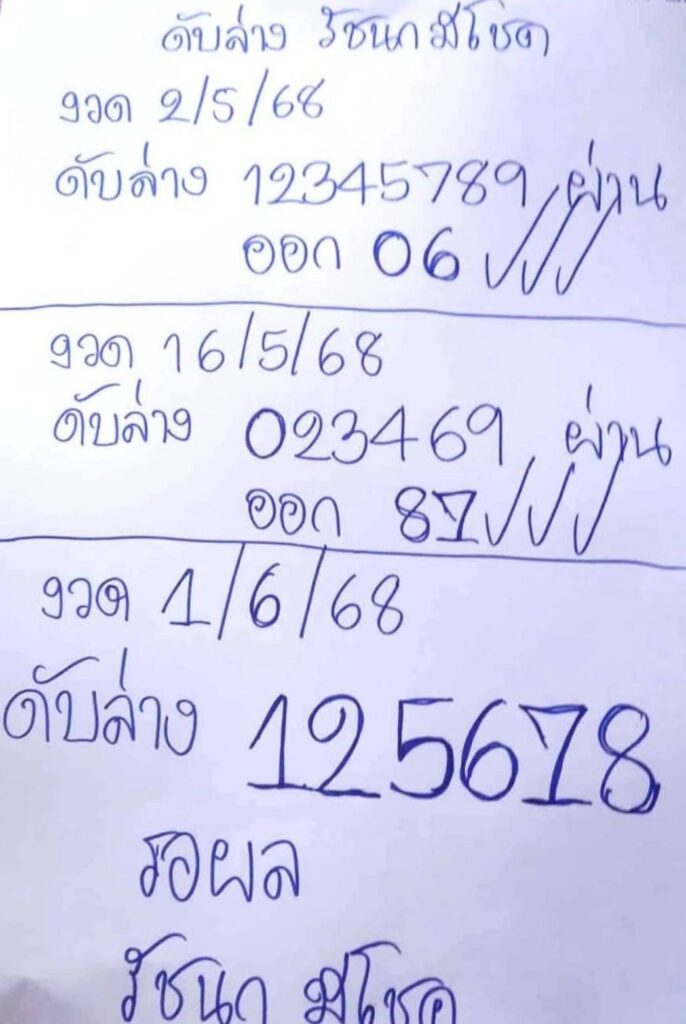 ดับล่าง รัชนก มีโชค
งวด 2/5/68
ดับล่าง 12345789 ผ่าน
ออก 06 ✓✓✓
งวด 16/5/68
ดับล่าง 023469 ผ่าน
ออก 87 ✓✓✓
งวด 1/6/68
ดับล่าง 125678
รอผล
รัชนก มีโชค